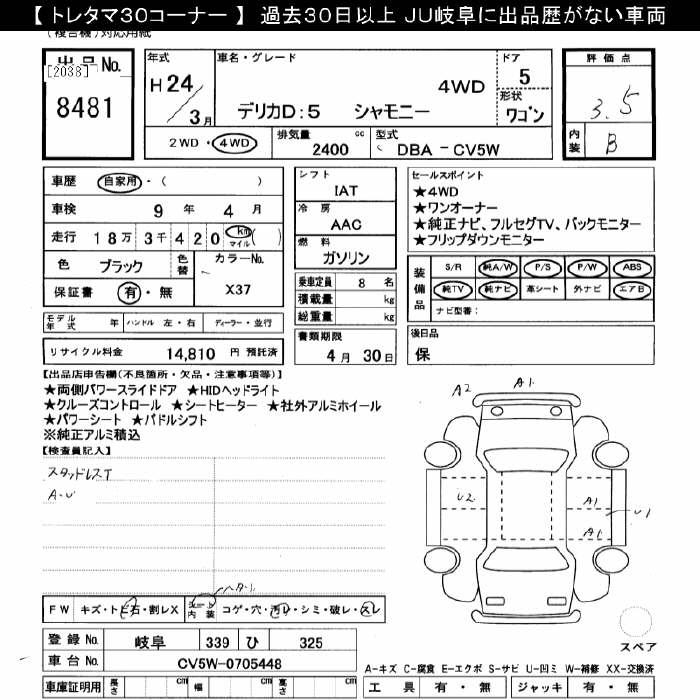 【 トレタマ30コーナー 】 過去30日以上 JU岐阜に出品歴がない車両
(複合機)対応用紙
出品No.
[2038]
8481
年式
H24
3月
車名・グレード
4WD
デリカD:5 シャモニー
ドア
5
形状
ワゴン
2WD・4WD
排気量
2400 cc
型式
DBA - CV5W
評価点
3.5
内装
B
車歴 自家用・( )
車検 9年 4月
走行 18万3千420 km マイル ( )
色 ブラック 色替
カラーNo.
X37
保証書 有・無
モデル年式 年 ハンドル 左・右 ディーラー・並行
リサイクル料金 14,810 円 預託済
シフト
IAT
冷房
AAC
燃料
ガソリン
乗車定員 8 名
積載量 kg
総重量 kg
書類期限
4月 30日
セールスポイント
★4WD
★ワンオーナー
★純正ナビ、フルセグTV、バックモニター
★フリップダウンモニター
装備品
S/R 純A/W P/S P/W ABS
純TV 純ナビ 革シート 外ナビ エアB
ナビ型番:
後日品
保
【出品店申告欄(不良箇所・欠品・注意事項等)】
★両側パワースライドドア ★HIDヘッドライト
★クルーズコントロール ★シートヒーター ★社外アルミホイール
★パワーシート ★パドルシフト
※純正アルミ積込
【検査員記入】
スタッドレスT
A-U
A2
A1
U2
A1
A1
U1
スペア
FW キズ・トビ石・割レX シート内装 コゲ・穴・汚レ・シミ・破レ・スレ
登録No. 岐阜 339 ひ 325
車台No. CV5W-0705448
車庫証明用 長さ cm 幅 cm 高さ cm
A-キズ C-腐食 E-エクボ S-サビ U-凹ミ W-補修 XX-交換済
工具 有・無 ジャッキ 有・無